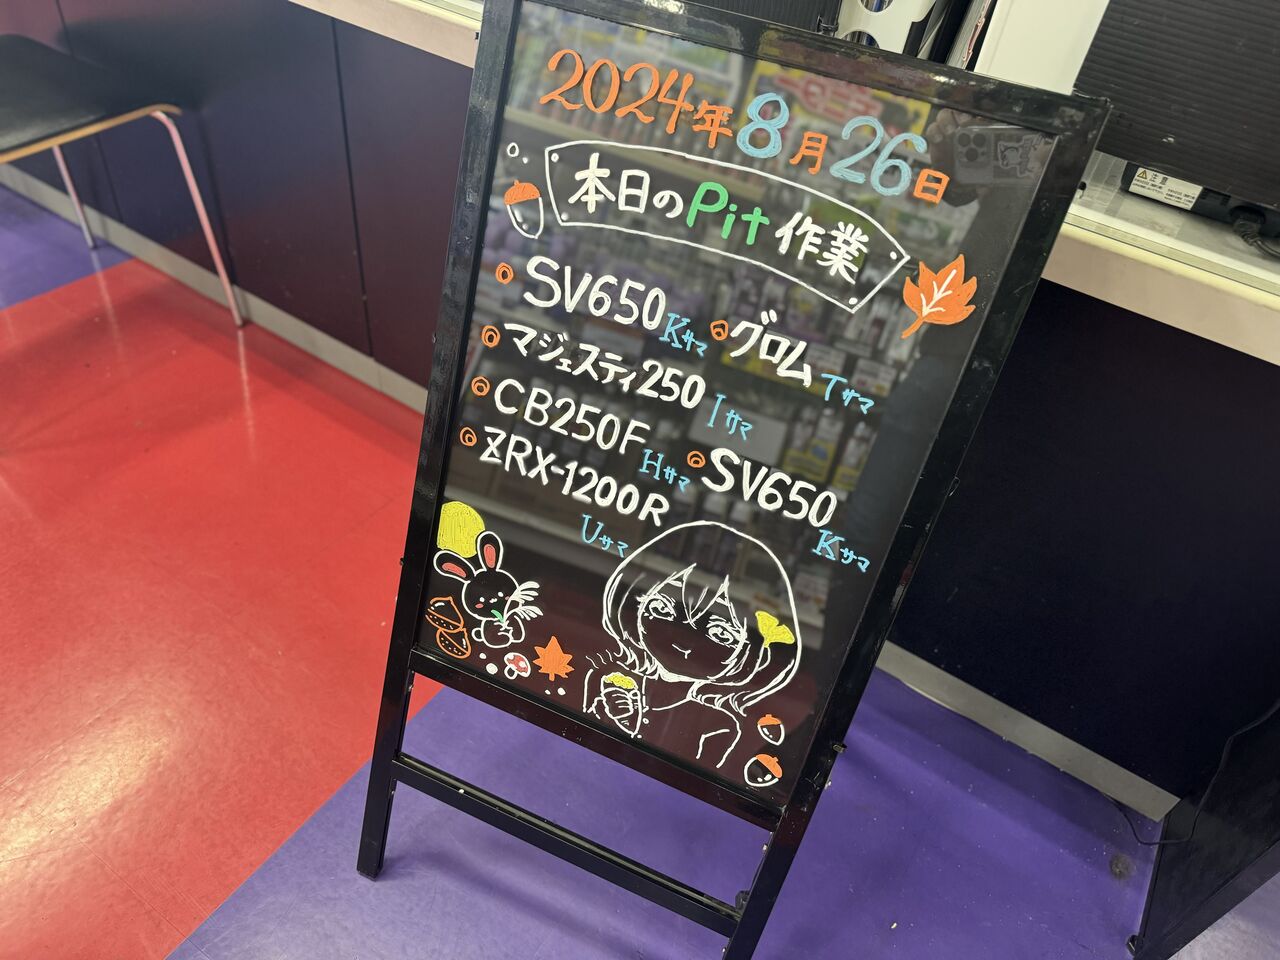 2024年8月26日
本日のPit作業
SV650 Kサマ
グロム Tサマ
マジェスティ250 Iサマ
CB250F Hサマ
SV650 Kサマ
ZRX-1200R Uサマ
注意